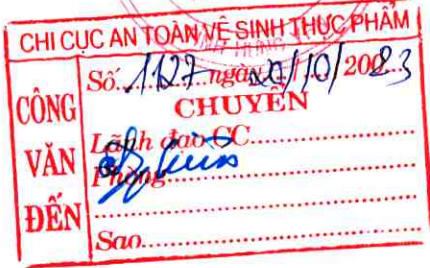 CHI CỤC AN TOÀN VỆ SINH THỰC PHẨM
CÔNG VĂN ĐẾN
Số 1127 ngày 20/10/2023
CHUYỂN
Lãnh đạo CC
Phòng
Sao